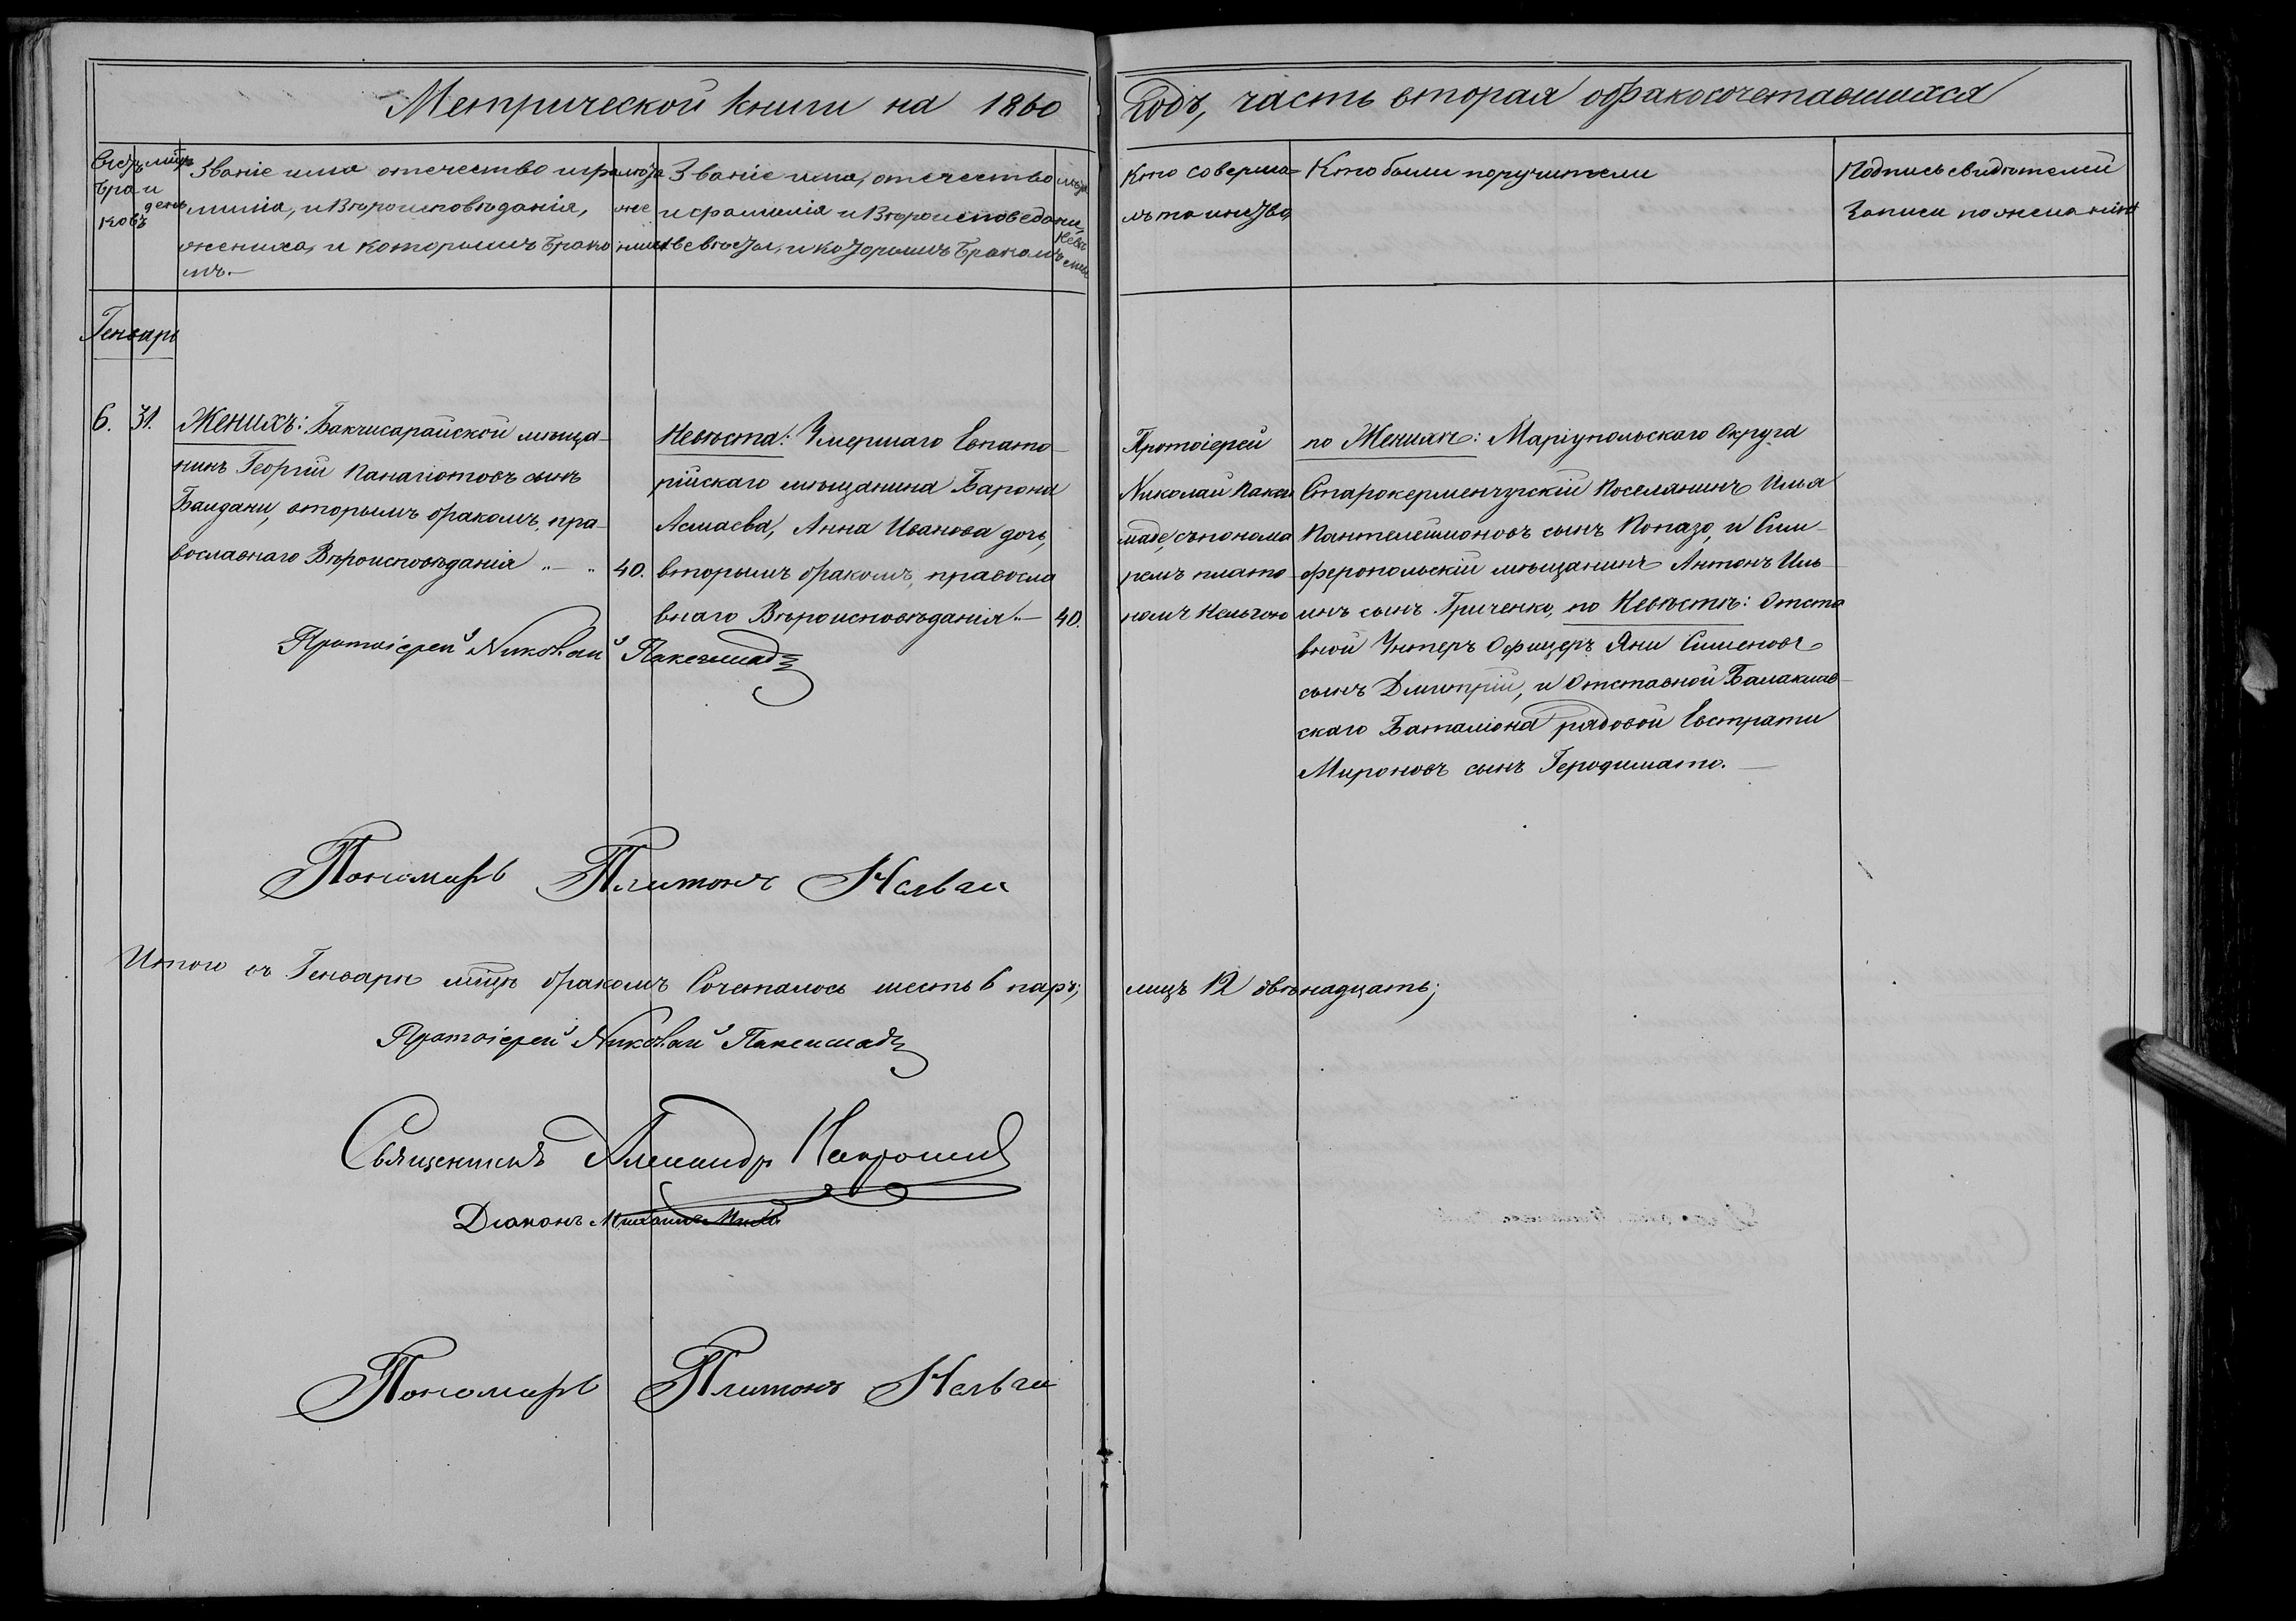 Метрической книги на 1860
Годъ, часть вторая обракосочетавшихся
Званіе имя отечество и фа-
миліа, и Вѣроисповѣданія,
жениха, и которымъ брако
мъ.
Званіе имя, отечество
и фамилія и Вѣроисповедани,
невѣсты, и которымъ бракомъ
Кто соверша-
лъ таинство
Кто были поручители
Подпись свидѣтелей
Записи по желанію
Генварь
6. 31.
Женихъ: Бакчисарайской мѣща-
нинъ Георгій Панагіотовъ сынъ
Баидани, вторымъ бракомъ, пра-
вославнаго Вѣроисповѣданія 40.
Невѣста: Умершаго Евпато-
рійскаго мѣщанина Барона
Асмаева, Анна Иванова дочь,
вторымъ бракомъ, правосла
внаго Вѣроисповѣданія 40.
Протоіерей Николай
Протоіерей
Николай Пакси
маде, съ понома
ремъ плато
номъ Нельгою
по Женихѣ: Маріупольскаго Округа
Старокерменчугскій Поселянинъ Илья
Пантелеимоновъ сынъ Попазо, и Сим-
феропольскій мѣщанинъ Антонъ Иль-
инъ сынъ Гриченко, по Невѣстѣ: Отста
вной Унтеръ Офицеръ Яни Сименовъ
сынъ Дмитрій, и Отставной Балаклав-
скаго Баталіона рядовой Евстрати
Мироновъ сынъ Геродимато.
Пономарь Платонъ
Итого въ Генварѣ мцѣ бракомъ Сочеталось шесть 6 паръ;
лицъ 12 двѣнадцать;
Протоіерей Николай
Священникъ Александр
Діаконъ Михаилъ
Пономарь Платонъ